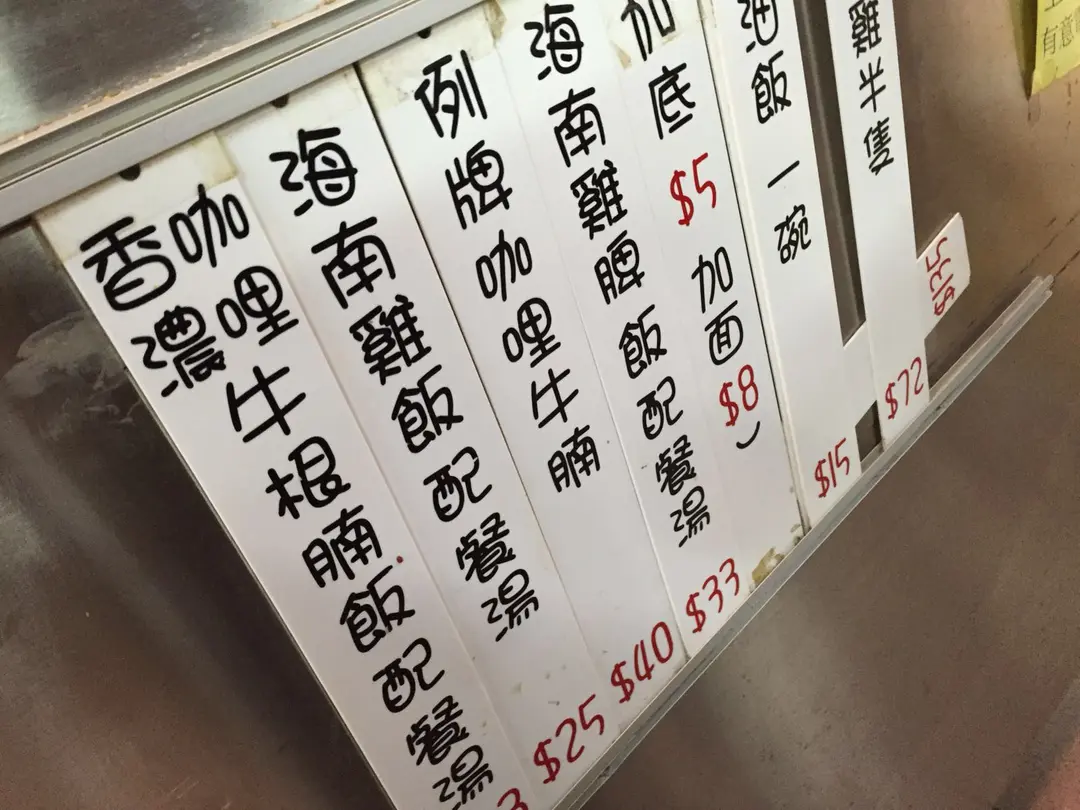 香濃咖哩牛根腩飯配餐湯
海南雞飯配餐湯 $25
例牌咖哩牛腩 $40
海南雞脾飯配餐湯 $33
加底 $5 加面 $8
油飯一碗 $15
雞半隻 $72
$135
有意